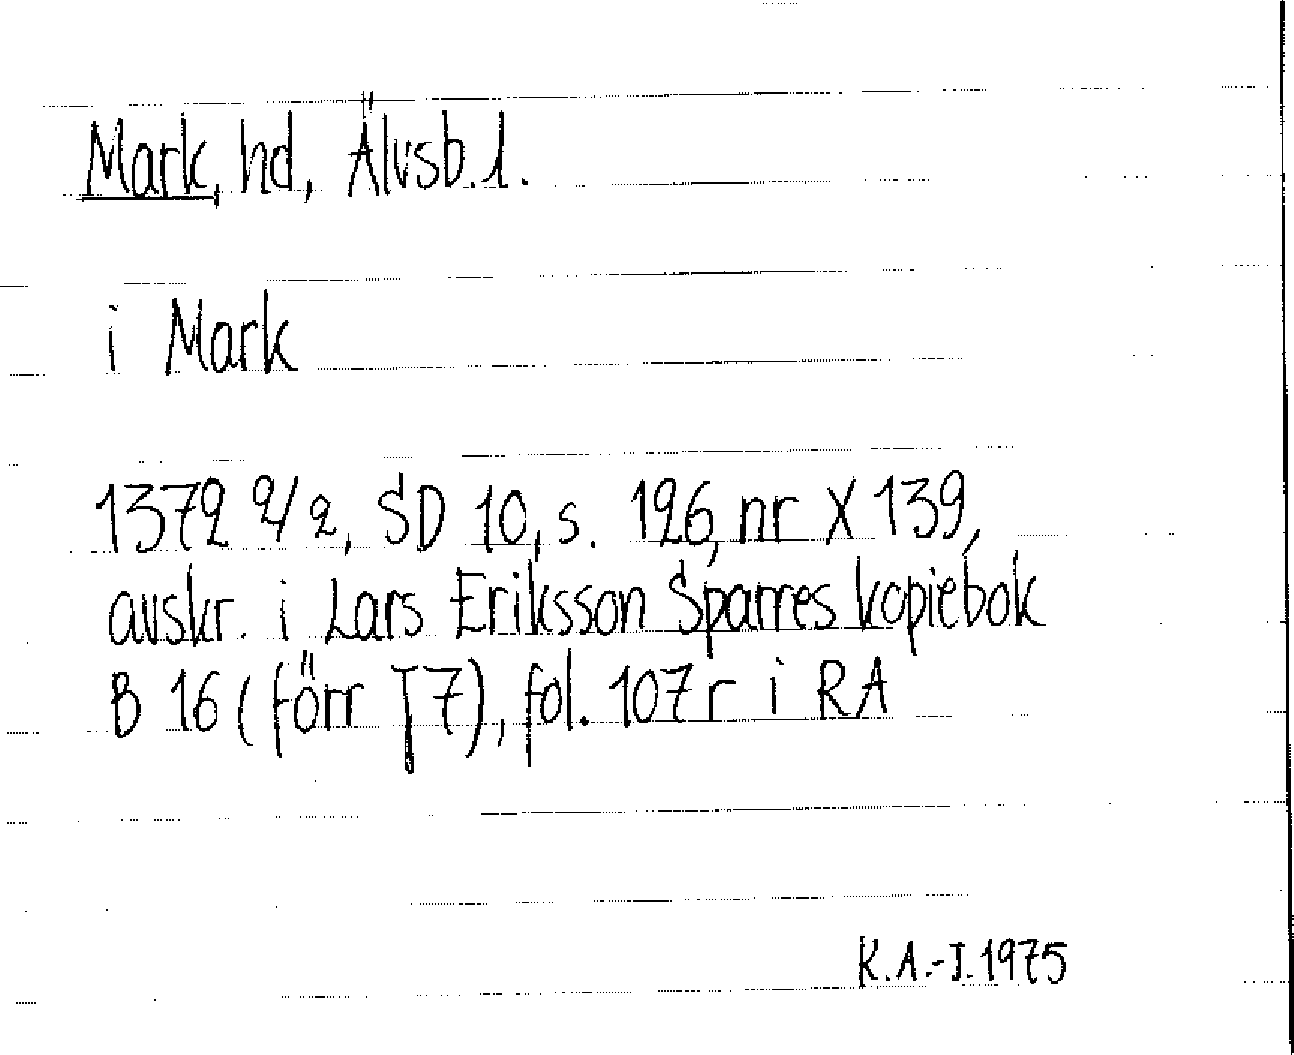 Mark, hd, Älvsb. l.
i Mark
1372 2/2, SD 10, s. 126, nr X 139,
avskr. i Lars Eriksson Sparres kopiebok
B 16 (förr T7), fol. 107 r i RA
K.A.-I. 1975